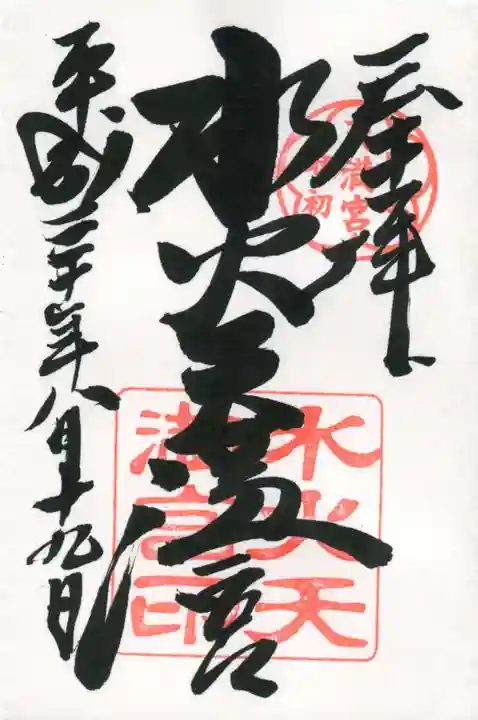 奉拝
水火天満宮
平成二十年八月十九日
天満宮
初
水火天
満宮印